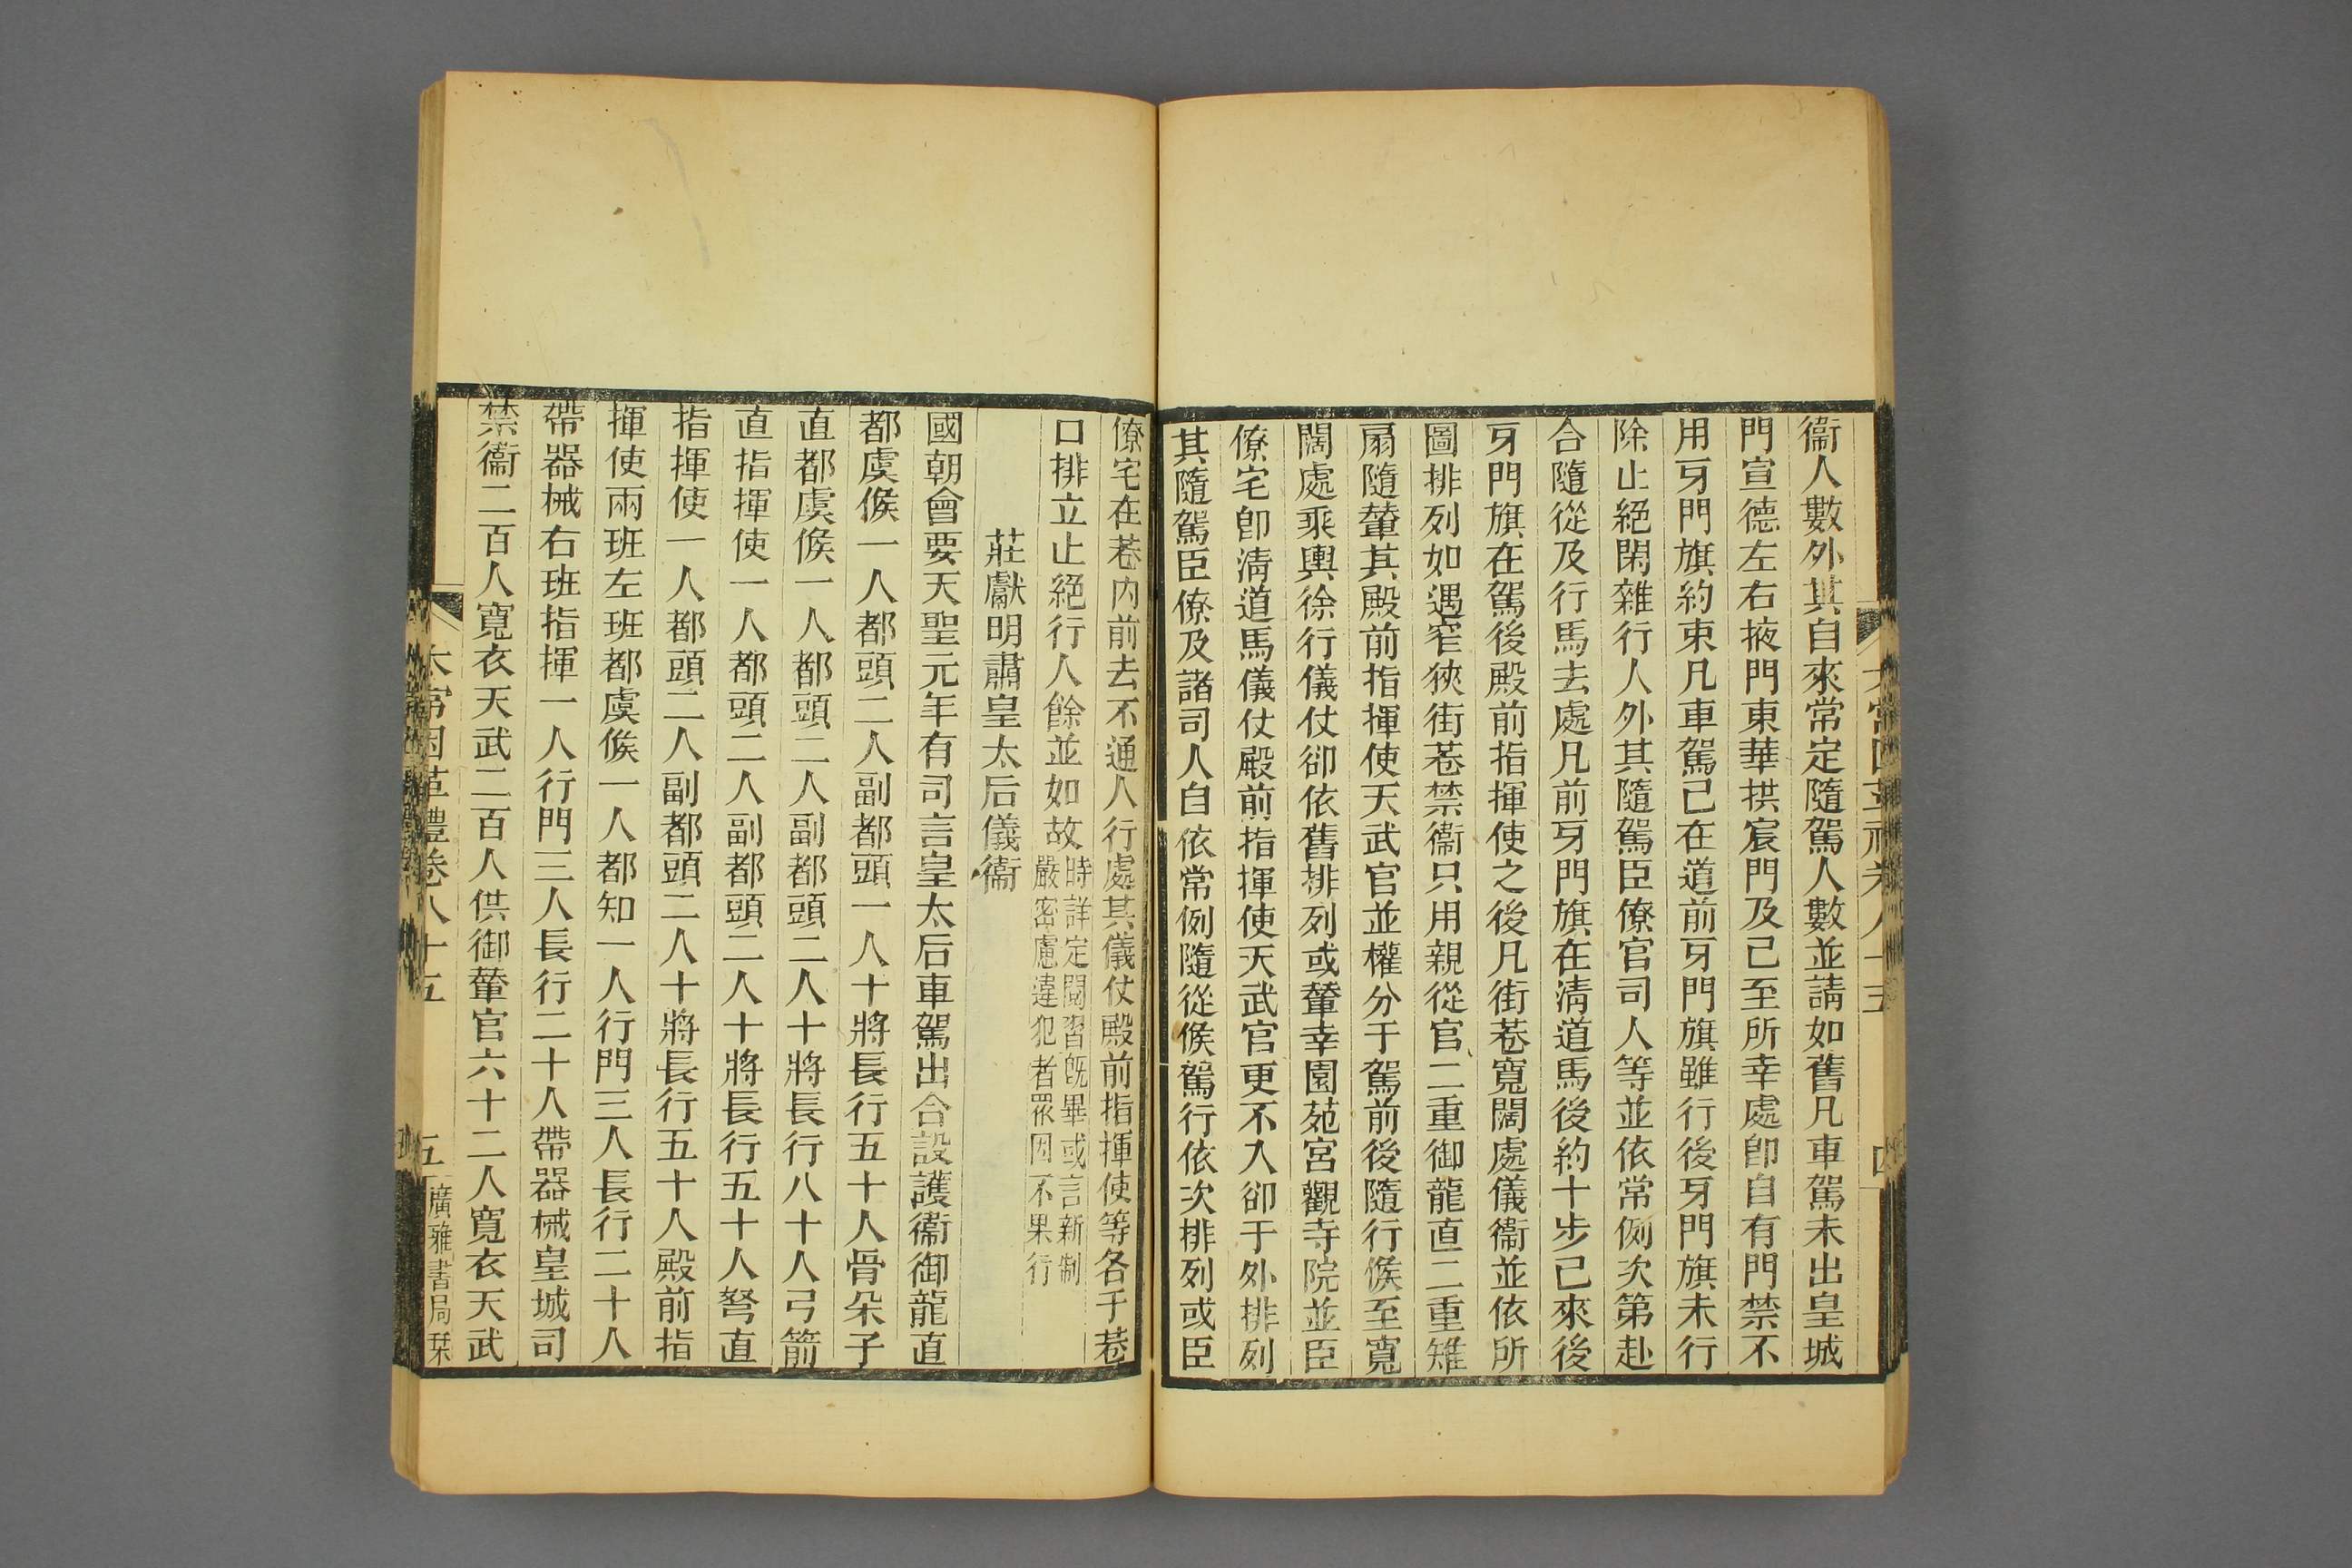 衞人數外其自來常定隨駕人數並請如舊凡車駕未出皇城
門宣德左右掖門東華拱宸門及已至所幸處卽自有門禁不
用牙門旗約束凡車駕已在道前牙門旗雖行後牙門旗未行
除止絕閑雜行人外其隨駕臣僚官司人等並依常例次第赴
合隨從及行馬去處凡前牙門旗在淸道馬後約十步已來後
牙門旗在駕後殿前指揮使之後凡街巷寬闊處儀衞並依所
圖排列如遇窄狹街巷禁衞只用親從官二重御龍直二重雉
扇隨輦其殿前指揮使天武官並權分于駕前後隨行候至寬
闊處乘輿徐行儀仗卻依舊排列或輦幸園苑宮觀寺院並臣
僚宅卽淸道馬儀仗殿前指揮使天武官更不入卻于外排列
其隨駕臣僚及諸司人自依常例隨從候駕行依次排列或臣
僚宅在巷內前去不通人行處其儀仗殿前指揮使等各于巷
口排立止絕行人餘並如故時詳定閱習旣畢或言新制
嚴密慮違犯者眾因不果行
莊獻明肅皇太后儀衞
國朝會要天聖元年有司言皇太后車駕出合設護衞御龍直
都虞候一人都頭二人副都頭一人十將長行五十人骨朵子
直都虞候一人都頭二人副都頭二人十將長行八十人弓箭
直指揮使一人都頭二人副都頭二人十將長行五十人弩直
指揮使一人都頭二人副都頭二人十將長行五十人殿前指
揮使兩班左班都虞候一人都知一人行門三人長行二十人
帶器械右班指揮一人行門三人長行二十人帶器械皇城司
禁衞二百人寬衣天武二百人供御輦官六十二人寬衣天武
太常因革禮卷八十五
五
廣雅書局栞